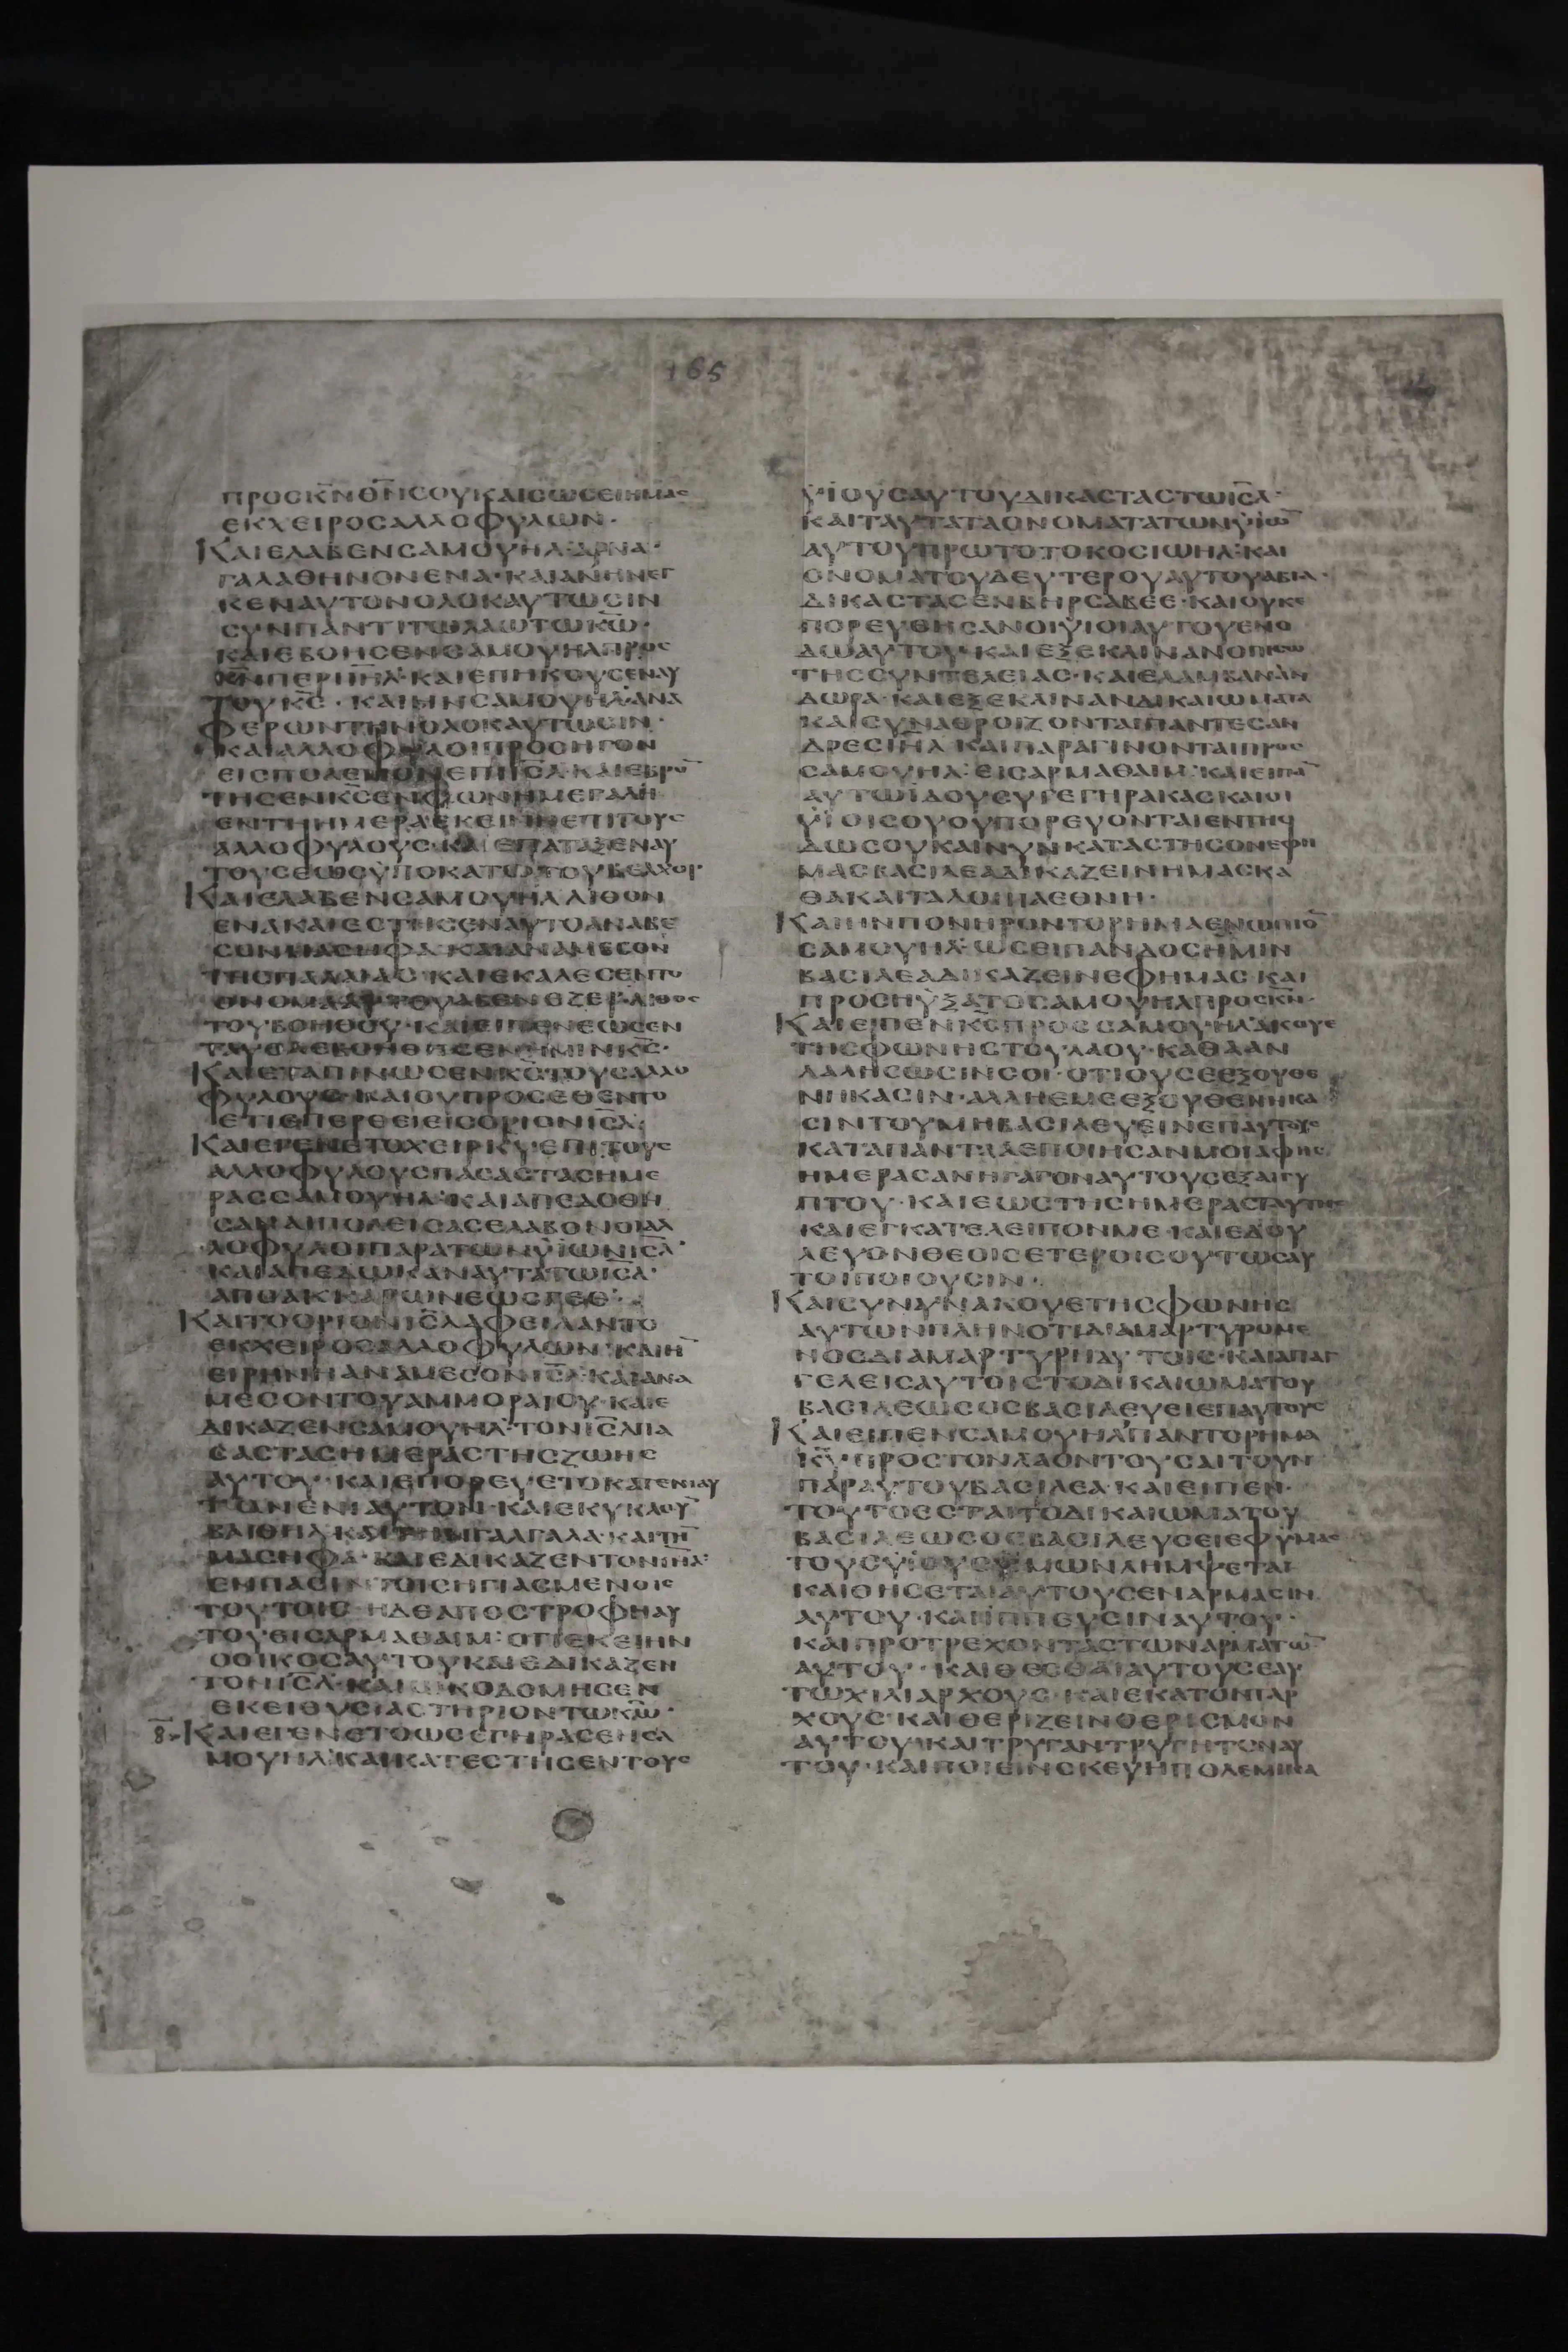 165
ΠΡΟCΚ̅Ν̅Θ̅Ν̅CΟΥΚΑΙCΩCΕΙΗΜΑC
ΕΚΧΕΙΡΟCΑΛΛΟΦΥΛΩΝ·
ΚΑΙΕΛΑΒΕΝCΑΜΟΥΗΛ·ΑΡΝΑ·
ΓΑΛΑΘΗΝΟΝΕΝΑ·ΚΑΙΑΝΗΝΕΓ
ΚΕΝΑΥΤΟΝΟΛΟΚΑΥΤΩCΙΝ
CΥΝΠΑΝΤΙΤΩΛΑΩΤΩΚ̅Ω̅·
ΚΑΙΕΒΟΗCΕΝCΑΜΟΥΗΛΠΡΟC
Κ̅Ν̅ΠΕΡΙΙ̅Η̅Λ̅·ΚΑΙΕΠΗΚΟΥCΕΝΑΥ
ΤΟΥΚ̅C̅·ΚΑΙΗΝCΑΜΟΥΗΛΑΝΑ
ΦΕΡΩΝΤΗΝΟΛΟΚΑΥΤΩCΙΝ·
ΚΑΙΑΛΛΟΦΥΛΟΙΠΡΟCΗΓΟΝ
ΕΙCΠΟΛΕΜΟΝΕΠΙΙ̅C̅Λ̅·ΚΑΙΕΒΡΟ̅
ΤΗCΕΝΚ̅C̅ΕΝΦΩΝΗΜΕΓΑΛΗ
ΕΝΤΗΗΜΕΡΑΕΚΕΙΝΗΕΠΙΤΟΥC
ΑΛΛΟΦΥΛΟΥC·ΚΑΙΕΠΑΤΑΞΕΝΑΥ
ΤΟΥCΕΩCΫΠΟΚΑΤΩΤΟΥΒΕΛΧΟΡ·
ΚΑΙΕΛΑΒΕΝCΑΜΟΥΗΛΛΙΘΟΝ
ΕΝΑΚΑΙΕCΤΗCΕΝΑΥΤΟΑΝΑΒΕ
CΟΝΜΑCΗΦΑ·ΚΑΙΑΝΑΜΕCΟΝ
ΤΗCΠΑΛΑΙΑC·ΚΑΙΕΚΑΛΕCΕΝΤΟ
ΟΝΟΜΑΑΥΤΟΥΑΒΕΝΕΖΕΡ·ΛΙΘΟC
ΤΟΥΒΟΗΘΟΥ·ΚΑΙΕΙΠΕΝΕΩCΕΝ
ΤΑΥΘΑΕΒΟΗΘΗCΕΝΗΜΙΝΚ̅C̅·
ΚΑΙΕΤΑΠΙΝΩCΕΝΚ̅C̅ΤΟΥCΑΛΛΟ
ΦΥΛΟΥC·ΚΑΙΟΥΠΡΟCΕΘΕΝΤΟ
ΕΤΙΕΠΕΡΘΕΙΕΙCΟΡΙΟΝΙ̅C̅Λ̅·
ΚΑΙΕΓΕΝΕΤΟΧΕΙΡΚ̅Υ̅ΕΠΙΤΟΥC
ΑΛΛΟΦΥΛΟΥCΠΑCΑCΤΑCΗΜΕ
ΡΑCCΑΜΟΥΗΛ·ΚΑΙΑΠΕΔΟΘΗ
CΑΝΑΙΠΟΛΕΙCΑCΕΛΑΒΟΝΟΙΑΛ
ΛΟΦΥΛΟΙΠΑΡΑΤΩΝΫΙΩΝΙ̅C̅Λ̅·
ΚΑΙΑΠΕΔΩΚΑΝΑΥΤΑΤΩΙ̅C̅Λ̅·
ΑΠΟΑΚΚΑΡΩΝΕΩCΓΕΘ·
ΚΑΙΤΟΟΡΙΟΝΙ̅C̅Λ̅ΑΦΕΙΛΑΝΤΟ
ΕΚΧΕΙΡΟCΑΛΛΟΦΥΛΩΝ·ΚΑΙΗ̅
ΕΙΡΗΝΗΑΝΑΜΕCΟΝΙ̅C̅Λ̅·ΚΑΙΑΝΑ
ΜΕCΟΝΤΟΥΑΜΜΟΡΑΙΟΥ·ΚΑΙΕ
ΔΙΚΑΖΕΝCΑΜΟΥΗΛ·ΤΟΝΙ̅C̅Λ̅ΠΑ
CΑCΤΑCΗΜΕΡΑCΤΗCΖΩΗC
ΑΥΤΟΥ·ΚΑΙΕΠΟΡΕΥΕΤΟΚΑΤΕΝΙΑΥ
ΤΟΝΕΝΙΑΥΤΟΝ·ΚΑΙΕΚΥΚΛΟΥ̅
ΒΑΙΘΗΛΚΑΙΤΗΝΓΑΛΓΑΛΑ·ΚΑΙΤΗ̅
ΜΑCΗΦΑ·ΚΑΙΕΔΙΚΑΖΕΝΤΟΝΙ̅Η̅Λ̅·
ΕΝΠΑCΙΝΤΟΙCΗΓΙΑCΜΕΝΟΙC
ΤΟΥΤΟΙC·ΗΔΕΑΠΟCΤΡΟΦΗΑΥ
ΤΟΥΕΙCΑΡΜΑΘΑΙΜ·ΟΤΙΕΚΕΙΗΝ
ΟΟΙΚΟCΑΥΤΟΥΚΑΙΕΔΙΚΑΖΕΝ
ΤΟΝΙ̅C̅Λ̅·ΚΑΙΩΚΟΔΟΜΗCΕΝ
ΕΚΕΙΘΥCΙΑCΤΗΡΙΟΝΤΩΚ̅Ω̅·
ΚΑΙΕΓΕΝΕΤΟΩCΕΓΗΡΑCΕΝCΑ
ΜΟΥΗΛ·ΚΑΙΚΑΤΕCΤΗCΕΝΤΟΥC
ΫΙΟΥCΑΥΤΟΥΔΙΚΑCΤΑCΤΩΙ̅C̅Λ̅·
ΚΑΙΤΑΥΤΑΤΑΟΝΟΜΑΤΑΤΩΝΫΙΩ̅
ΑΥΤΟΥΠΡΩΤΟΤΟΚΟCΙΩΗΛ·ΚΑΙ
ΟΝΟΜΑΤΟΥΔΕΥΤΕΡΟΥΑΥΤΟΥΑΒΙΑ·
ΔΙΚΑCΤΑCΕΝΒΗΡCΑΒΕΕ·ΚΑΙΟΥΚΕ
ΠΟΡΕΥΘΗCΑΝΟΙΫΙΟΙΑΥΤΟΥΕΝΟ
ΔΩΑΥΤΟΥ·ΚΑΙΕΞΕΚΛΙΝΑΝΟΠΙCΩ
ΤΗCCΥΝΤΕΛΕΙΑC·ΚΑΙΕΛΑΜΒΑΝΑΝ
ΔΩΡΑ·ΚΑΙΕΞΕΚΛΙΝΑΝΔΙΚΑΙΩΜΑΤΑ
ΚΑΙCΥΝΑΘΡΟΙΖΟΝΤΑΙΠΑΝΤΕCΑΝ
ΔΡΕCΙ̅Η̅Λ̅·ΚΑΙΠΑΡΑΓΙΝΟΝΤΑΙΠΡΟC
CΑΜΟΥΗΛ·ΕΙCΑΡΜΑΘΑΙΜ·ΚΑΙΕΙΠΑ̅
ΑΥΤΩΙΔΟΥCΥΓΕΓΗΡΑΚΑCΚΑΙΟΙ
ΫΙΟΙCΟΥΟΥΠΟΡΕΥΟΝΤΑΙΕΝΤΗΟ
ΔΩCΟΥΚΑΙΝΥΝΚΑΤΑCΤΗCΟΝΕΦΗ
ΜΑCΒΑCΙΛΕΑΔΙΚΑΖΕΙΝΗΜΑCΚΑ
ΘΑΚΑΙΤΑΛΟΙΠΑΕΘΝΗ·
ΚΑΙΗΝΠΟΝΗΡΟΝΤΟΡΗΜΑΕΝΩΠΙΟ̅
CΑΜΟΥΗΛ·ΩCΕΙΠΑΝΔΟCΗΜΙΝ
ΒΑCΙΛΕΑΔΙΚΑΖΕΙΝΕΦΗΜΑC·ΚΑΙ
ΠΡΟCΗΥΞΑΤΟCΑΜΟΥΗΛΠΡΟCΚ̅Ν̅·
ΚΑΙΕΙΠΕΝΚ̅C̅ΠΡΟCCΑΜΟΥΗΛ·ΑΚΟΥΕ
ΤΗCΦΩΝΗCΤΟΥΛΑΟΥ·ΚΑΘΑΑΝ
ΛΑΛΗCΩCΙΝCΟΙ·ΟΤΙΟΥCΕΕΞΟΥΘΕ
ΝΗΚΑCΙΝ·ΑΛΛΗΕΜΕΕΞΟΥΘΕΝΗΚΑ
CΙΝΤΟΥΜΗΒΑCΙΛΕΥΕΙΝΕΠΑΥΤΟΥC
ΚΑΤΑΠΑΝΤΑΑΕΠΟΙΗCΑΝΜΟΙΑΦΗC
ΗΜΕΡΑCΑΝΗΓΑΓΟΝΑΥΤΟΥCΕΞΑΙΓΥ
ΠΤΟΥ·ΚΑΙΕΩCΤΗCΗΜΕΡΑCΤΑΥΤΗC
ΚΑΙΕΓΚΑΤΕΛΕΙΠΟΝΜΕ·ΚΑΙΕΔΟΥ
ΛΕΥΟΝΘΕΟΙCΕΤΕΡΟΙCΟΥΤΩCΑΥ
ΤΟΙΠΟΙΟΥCΙΝ·
ΚΑΙCΥΝΥΝΑΚΟΥΕΤΗCΦΩΝΗC
ΑΥΤΩΝΠΛΗΝΟΤΙΔΙΑΜΑΡΤΥΡΟΜΕ
ΝΟCΔΙΑΜΑΡΤΥΡΗΑΥΤΟΙC·ΚΑΙΑΠΑΓ
ΓΕΛΕΙCΑΥΤΟΙCΤΟΔΙΚΑΙΩΜΑΤΟΥ
ΒΑCΙΛΕΩCΟCΒΑCΙΛΕΥCΕΙΕΠΑΥΤΟΥC
ΚΑΙΕΙΠΕΝCΑΜΟΥΗΛΠΑΝΤΟΡΗΜΑ
Κ̅Υ̅·ΠΡΟCΤΟΝΛΑΟΝΤΟΥCΑΙΤΟΥΝ
ΠΑΡΑΥΤΟΥΒΑCΙΛΕΑ·ΚΑΙΕΙΠΕΝ·
ΤΟΥΤΟΕCΤΑΙΤΟΔΙΚΑΙΩΜΑΤΟΥ
ΒΑCΙΛΕΩCΟCΒΑCΙΛΕΥCΕΙΕΦΫΜΑC
ΤΟΥCΫΙΟΥCΫΜΩΝΛΗΜΨΕΤΑΙ
ΚΑΙΘΗCΕΤΑΙΑΥΤΟΥCΕΝΑΡΜΑCΙΝ
ΑΥΤΟΥ·ΚΑΙΙΠΠΕΥCΙΝΑΥΤΟΥ·
ΚΑΙΠΡΟΤΡΕΧΟΝΤΑCΤΩΝΑΡΜΑΤΩ̅
ΑΥΤΟΥ·ΚΑΙΘΕCΘΑΙΑΥΤΟΥCΕΑΥ
ΤΩΧΙΛΙΑΡΧΟΥC·ΚΑΙΕΚΑΤΟΝΤΑΡ
ΧΟΥC·ΚΑΙΘΕΡΙΖΕΙΝΘΕΡΙCΜΟΝ
ΑΥΤΟΥ·ΚΑΙΤΡΥΓΑΝΤΡΥΓΗΤΟΝΑΥ
ΤΟΥ·ΚΑΙΠΟΙΕΙΝCΚΕΥΗΠΟΛΕΜΙΚΑ